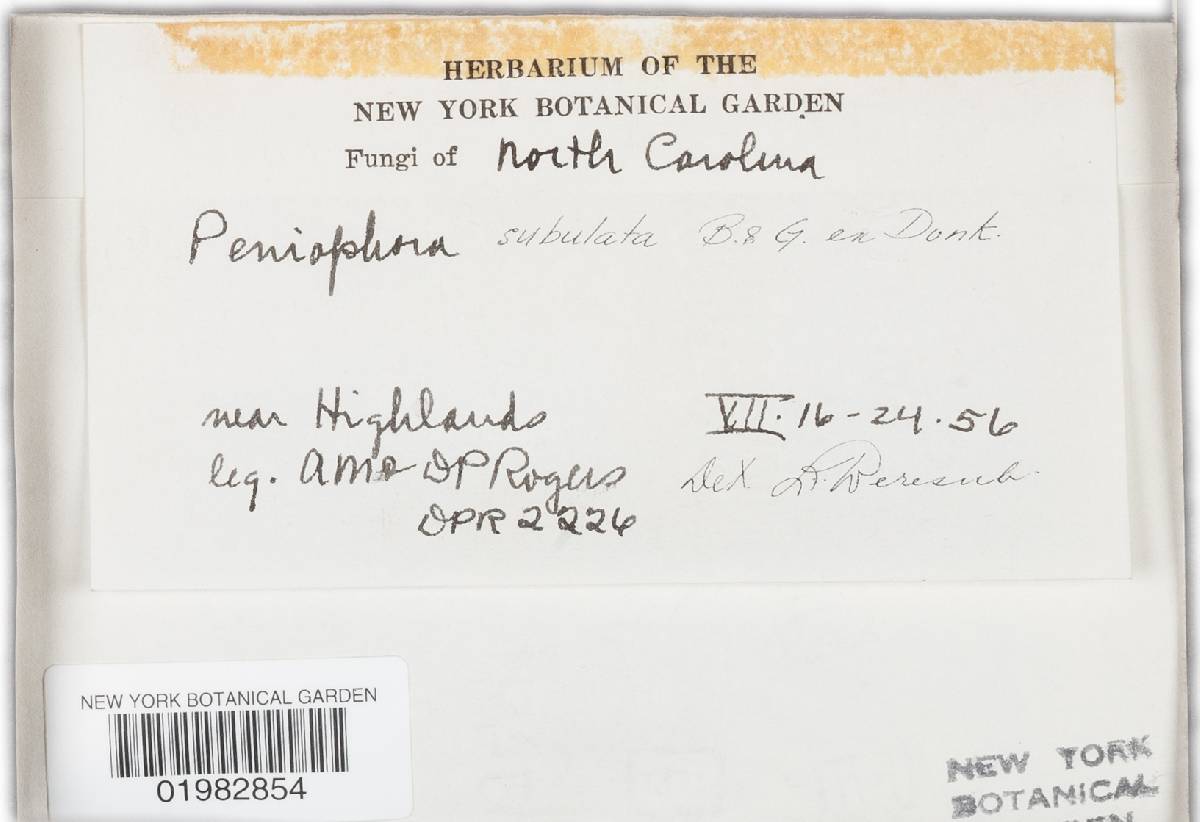 HERBARIUM OF THE
NEW YORK BOTANICAL GARDEN
Fungi of North Carolina
Peniophora subulata B. & G. ex Donk.
near Highlands VII. 16-24. 56
leg. AM & DP Rogers Det
DPR 2226
NEW YORK BOTANICAL GARDEN
01982854
NEW YORK
BOTANICAL